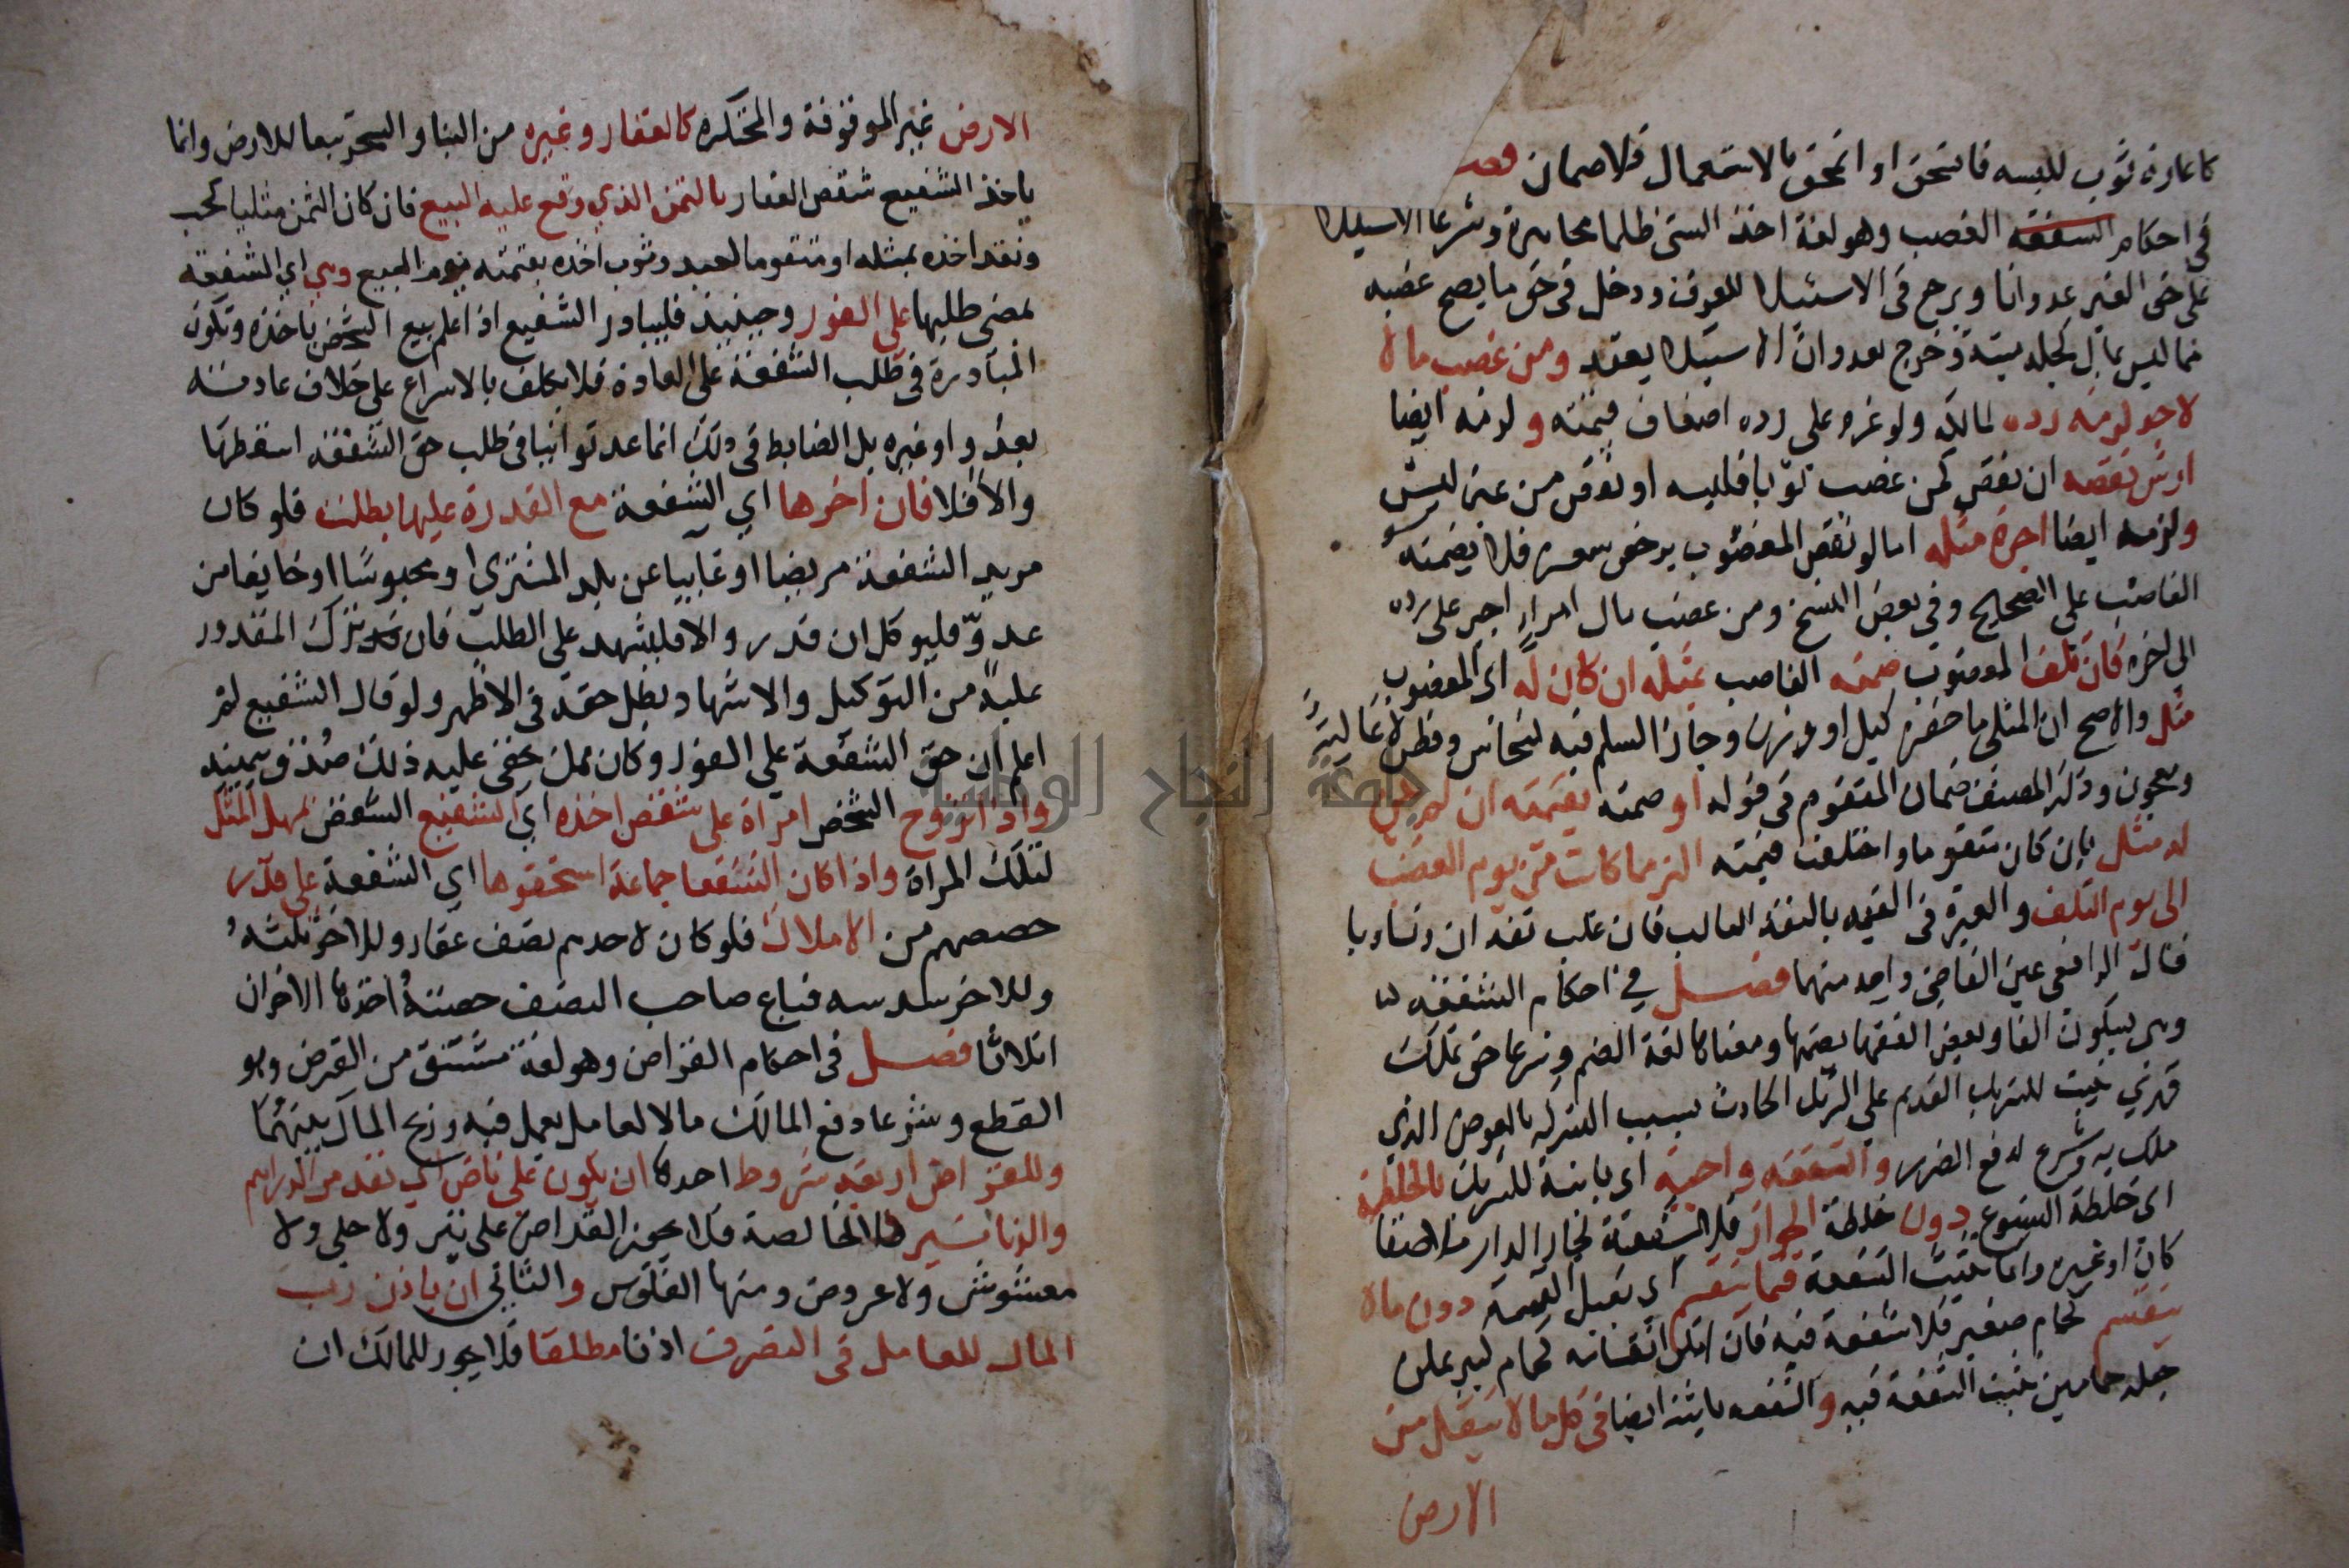 كاعارة ثوب للبسه فانسحق او انمحق بالاستعمال فلا ضمان فصل
في احكام السفقه الغصب وهو لغة اخذ الشي ظلما مجاهرة وشرعا الاستيلا
على حق الغير عدوانا ويرجع في الاستيلا للعرف ودخل في حق ما يصح غصبه
مما ليس بمال كجلد ميتة وخرج بعدوانا الاستيلا بعقد ومن غصب مالا
لاحد لزمه رده لمالكه ولو غرم على رده اضعاف قيمته و لزمه ايضا
ارش نقصه ان نقص كمن غصب ثوبا فلبسه او نقص من غير لبس
ولزمه ايضا اجرة مثله اما لو نقص المغصوب برخص سعره فلا يضمنه
الغاصب على الصحيح وفي بعض النسخ ومن غصب مال امرإ اجبر على رده
الى اخره فان تلف المغصوب ضمنه الغاصب بمثله ان كان له اي المغصوب
مثل والاصح ان المثلي ما حصره كيل او وزن وجاز السلم فيه لنحاس وقطن لا غالية
ومعجون وذكر المصنف ضمان المتقوم في قوله او ضمنه بقيمته ان لم يكن
له مثل بان كان متقوما واختلفت قيمته اكثر ما كانت من يوم الغصب
الى يوم التلف والعبرة في القيمه بالنقد الغالب فان غلب نقدان وتساويا
قال الرافعي عين القاضي واحد منهما فصل في احكام الشفعه
وهي بسكون الفا وبعض الفقها يضمها ومعناها لغة الضم وشرعا حق تملك
قهري يثبت للشريك القديم على الشريك الحادث بسبب الشركه بالعوض الذي
ملك به وشرع لدفع الضرر والشفعه واجبه اي ثابتة للشريك بالخلطة
اي خلطة الشيوع دون خلطة الجوار فلا شفعة لجار الدار ملاصقا
كان او غيره وانما تثبت الشفعة فيما ينقسم اي يقبل القسمة دون ما لا
ينقسم كحمام صغير فلا شفعة فيه فان امكن انقسامه كحمام كبير يمكن
جعله حمامين تثبت الشفعة فيه والشفعه ثابتة ايضا في كل ما لا ينقل من
الارض
الارض غير الموقوفة والمحتكره كالعقار وغيره من البنا والشجر تبعا للارض وانما
ياخذ الشفيع شقص العقار بالثمن الذي وقع عليه البيع فان كان الثمن مثليا كحب
ونقد اخذه بمثله او متقوما كعبد وثوب اخذه بقيمته يوم البيع وهي اي الشفعة
بمعنى طلبها على الفور وحينيذ فليبادر الشفيع اذا علم بيع الشقص باخذه وتكون
المبادرة في طلب الشفعة على العادة فلا يكلف بالاسراع على خلاف عادته
بعدو او غيره بل الضابط في ذلك انما عد توانيا في طلب حق الشفعه اسقطها
والا فلا فان اخرها اي الشفعة مع القدرة عليها بطلت فلو كان
مريد الشفعة مريضا او غايبا عن بلد المشتري او محبوسا او خايفا من
عدو فليوكل ان قدر والا فليشهد على الطلب فان ترك المقدور
عليه من التوكيل والاشهاد بطل حقه في الاظهر ولو قال الشفيع لم
اعلم ان حق الشفعة على الفور وكان ممن يخفى عليه ذلك صدق بيمينه
واذا تزوج الشخص امراة على شقص اخذه اي الشفيع الشقص بمهر المثل
لتلك المراة واذا كان الشفعا جماعة استحقوها اي الشفعة على قدر
حصصهم من الاملاك فلو كان لاحدهم نصف عقار وللاخر ثلثه
وللاخر سدسه فباع صاحب النصف حصته اخذها الاخران
اثلاثا فصل في احكام القراض وهو لغة مشتق من القرض وهو
القطع وشرعا دفع المالك مالا لعامل يعمل فيه وربح المال بينهما
وللقراض اربعة شروط احدها ان يكون على ناض اي نقد من الدراهم
والدنانير الخالصة فلا يجوز القراض على تبر ولا حلي ولا
مغشوش ولا عروض ومنها الفلوس والثاني ان ياذن رب
المال للعامل في التصرف اذنا مطلقا فلا يجوز للمالك ان
جامعة النجاح الوطنية